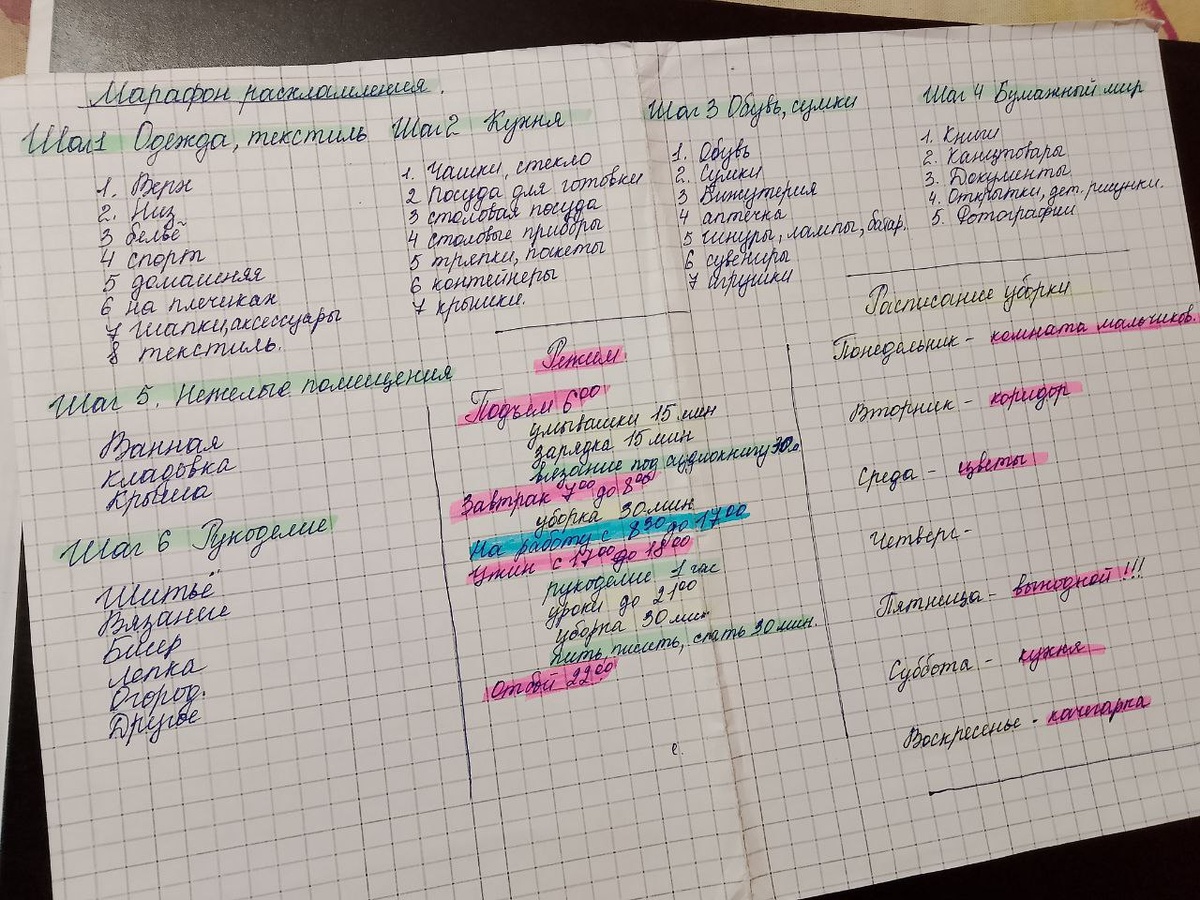 Марафон расхламления.
Шаг 1 Одежда, текстиль
1. Верх
2. Низ
3 бельё
4 спорт
5 домашняя
6 на плечиках
7 шапки, аксессуары
8 текстиль.
Шаг 2 Кухня
1. Чашки, стекло
2 Посуда для готовки
3 столовая посуда
4 столовые приборы
5 тряпки, пакеты
6 контейнеры
7 крышки.
Шаг 3 Обувь, сумки
1. Обувь
2. Сумки
3 Бижутерия
4 аптечка
5 Шнуры, лампы, батар.
6 сувениры
7 игрушки
Шаг 4 Бумажный мир
1. Книги
2. Канцтовары
3. Документы
4. Открытки, дет. рисунки.
5. Фотографии
Шаг 5. Нежелые помещения
Ванная
Кладовка
Крыша
Шаг 6 Рукоделие
Шитьё
Вязание
Бисер
Лепка
Огород.
Другое
Режим
Подъём 6⁰⁰
умывашки 15 мин
зарядка 15 мин
вязание под аудиокнигу 30м
Завтрак 7⁰⁰ до 8⁰⁰
уборка 30 мин
На работу с 8³⁰ до 17⁰⁰
Ужин с 17⁰⁰ до 18⁰⁰
рукоделие 1 час
уроки до 21⁰⁰
уборка 30 мин
пить, писать, спать 30 мин.
Отбой 22⁰⁰
Расписание уборки
Понедельник - комната мальчиков.
Вторник - коридор
Среда - цветы
Четверг -
Пятница - выходной!!!
Суббота - кухня
Воскресенье - кочегарка
е.